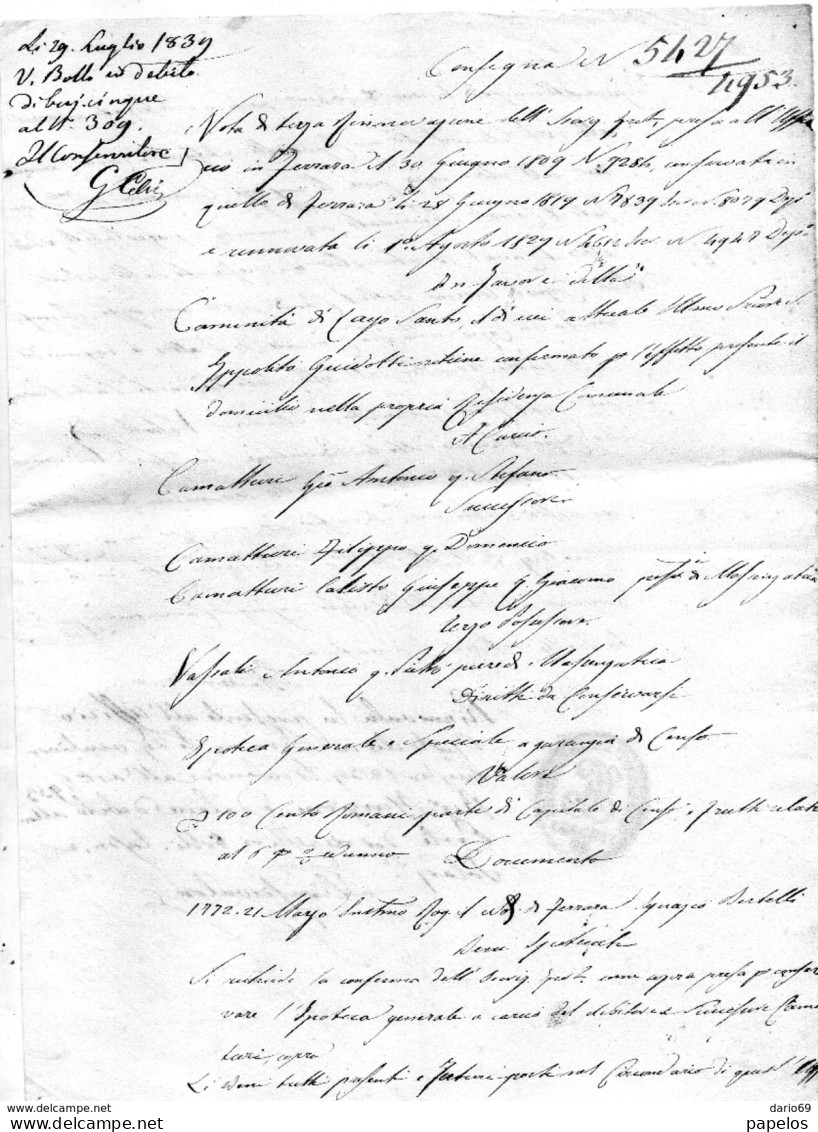 Li 29. Luglio 1839
V. Bollo ed debito
di baj. cinque
al N. 309.
Il Conservatore
G Celi
Consegna N. 5427
4953.
Nota di terza Rinnovazione dell' Iscriz. Ipot. presa all' Uffi
cio in Ferrara il 30 Giugno 1809 N. 9286, conservata in
quello di Ferrara li 28 Giugno 1819 N 7839 N. 8079
e rinnovata li 1° Agosto 1829 N N 4947
In favore della
Comunità di Cajo Santo, di cui attuale
Ippolito Guidotti ritiene confermato p l'effetto presente il
domicilio nella propria Residenza Comunale
A Carico
Camatturi Gio Antonio q. Stefano
Successori
Camatturi Filippo q. Domenico
Camatturi Calisto Giuseppe q. Giacomo di
Terzo Possessore
Vassali Antonio q. di Masumatica
Diritti da Conservarsi
Ipoteca Generale e Speciale a garanzia di Censo
Valore
100 Cento Romani parte di Capitale di Censo e frutti relati
al 6 p
Documento
1772. 21 Marzo Rog. il Not. di Ferrara Ignazio Bertelli
Beni Ipotecati
Si richiede la conferma dell' Iscriz. Ipot. come agora presa p conser
vare l'Ipoteca generale a carico del debitore e Successore Cama
turi, sopra
Li Beni tutti presenti e futuri posti nel Circondario di quest' Uff
www.delcampe.net
dario69
papelos